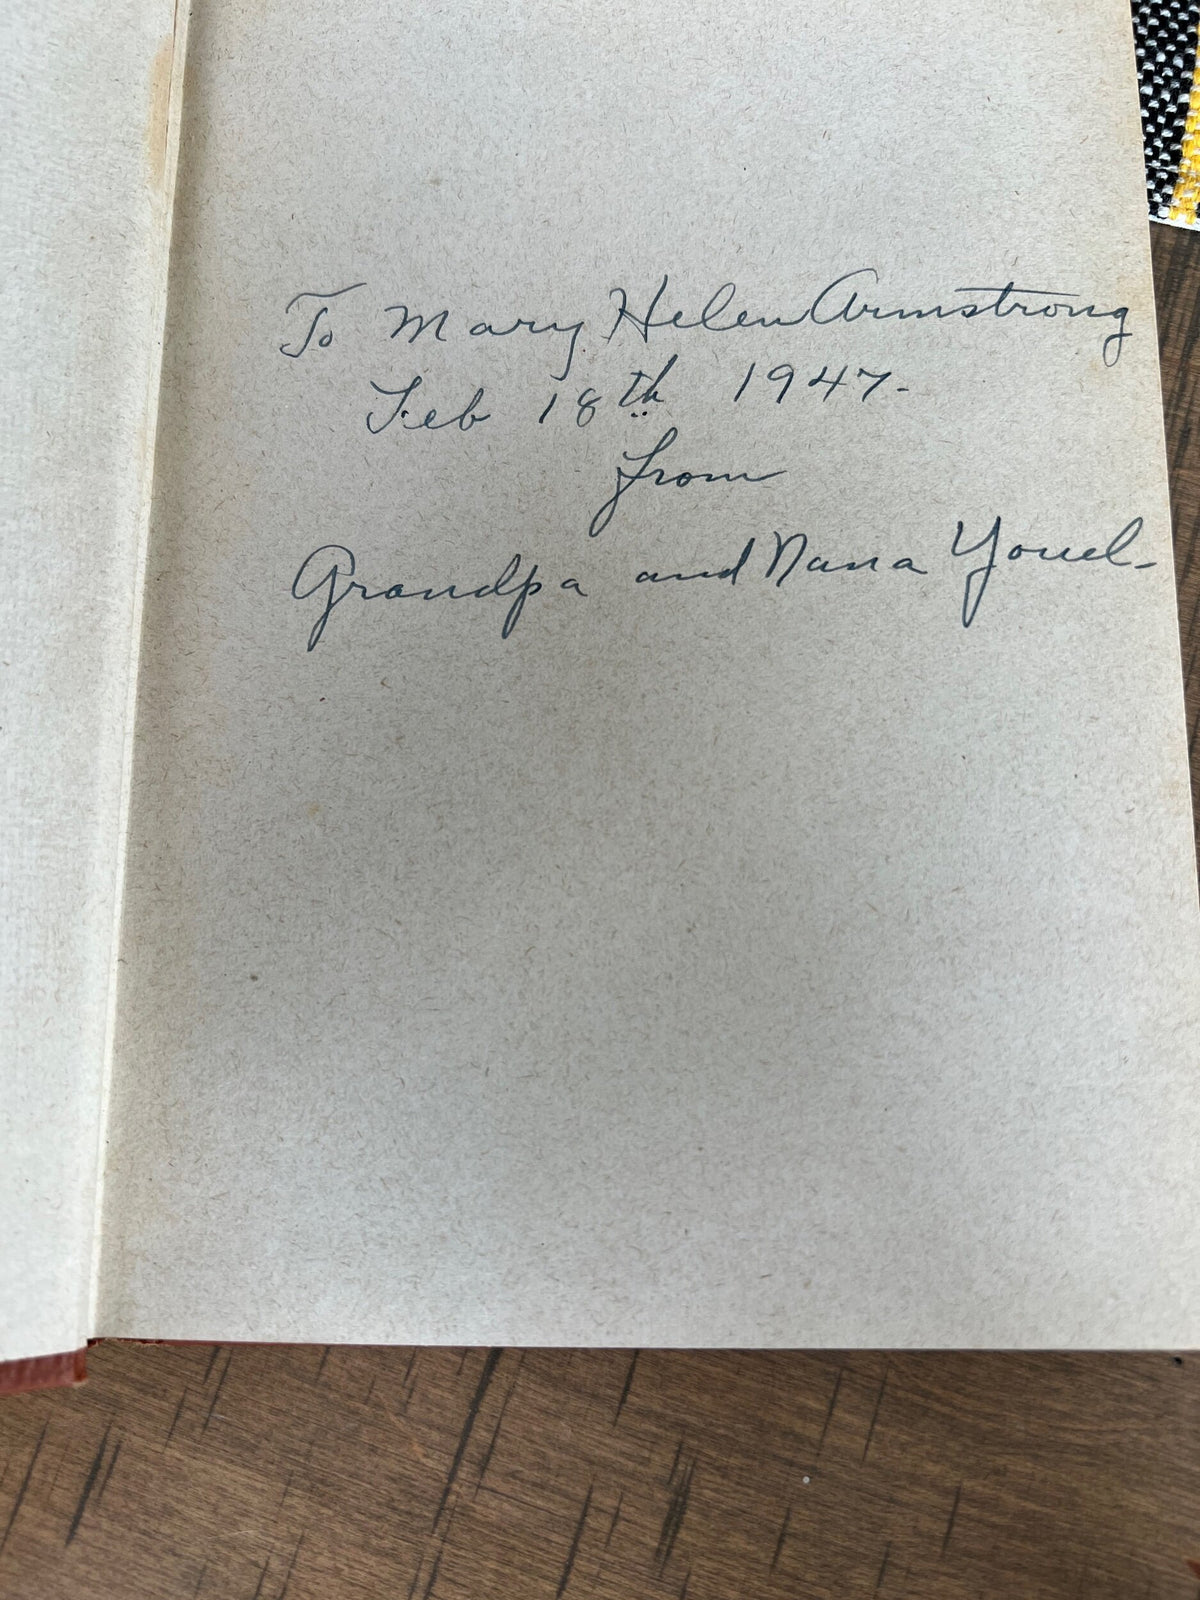 To Mary Helen Armstrong
Feb 18th 1947-
from
Grandpa and Nana Youel-